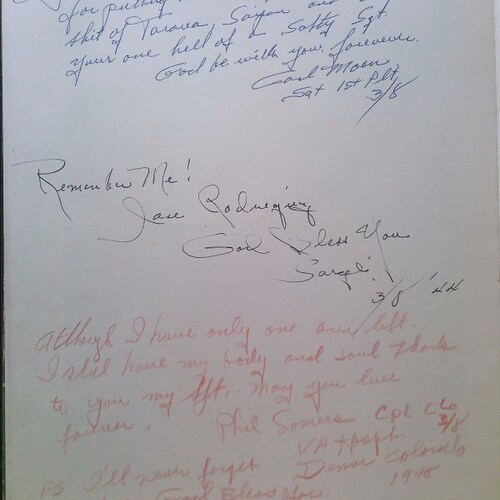 for putting
shit of Tarawa, Saipan and
your one hell of a Salty Sgt.
God be with you forever.
Carl Moen
Sgt 1st Plt
3/8
Remember Me!
Jose Rodriguez
God Bless You
Sarge!
3/8 '44
Although I have only one arm left.
I still have my body and soul thanks
to you my Sgt. may you live
forever. Phil Somers Cpl C Co
3/8
VA Hosph.
P.S I'll never forget Denver Colorado
God Bless You. 1945